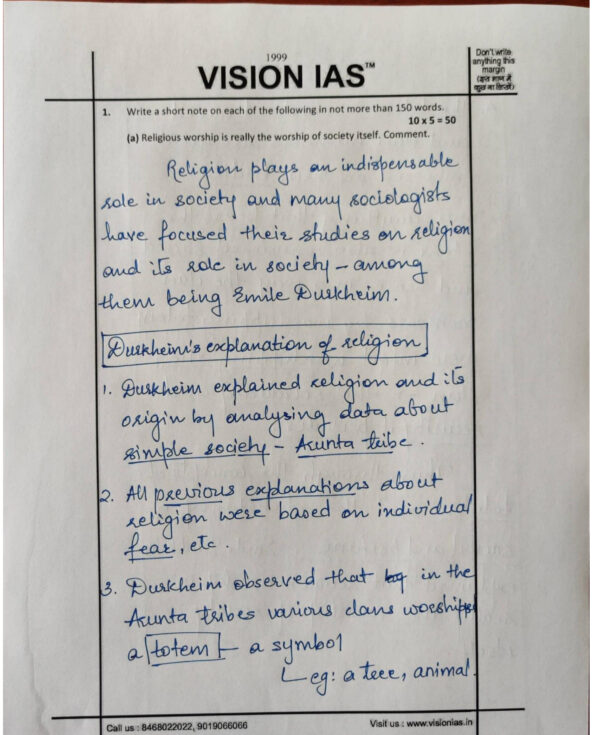 1999
VISION IAS™
Don't write
anything this
margin
(इस भाग में
कुछ ना लिखें)
1. Write a short note on each of the following in not more than 150 words.
10 x 5 = 50
(a) Religious worship is really the worship of society itself. Comment.
Religion plays an indispensable
role in society and many sociologists
have focused their studies on religion
and its role in society – among
them being Emile Durkheim.
Durkheim's explanation of religion
1. Durkheim explained religion and its
origin by analysing data about
simple society – Arunta tribe.
2. All previous explanations about
religion were based on individual
fear, etc.
3. Durkheim observed that in the
Arunta tribes various clans worships
a totem – a symbol
eg: a tree, animal.
Call us : 8468022022, 9019066066
Visit us : www.visionias.in